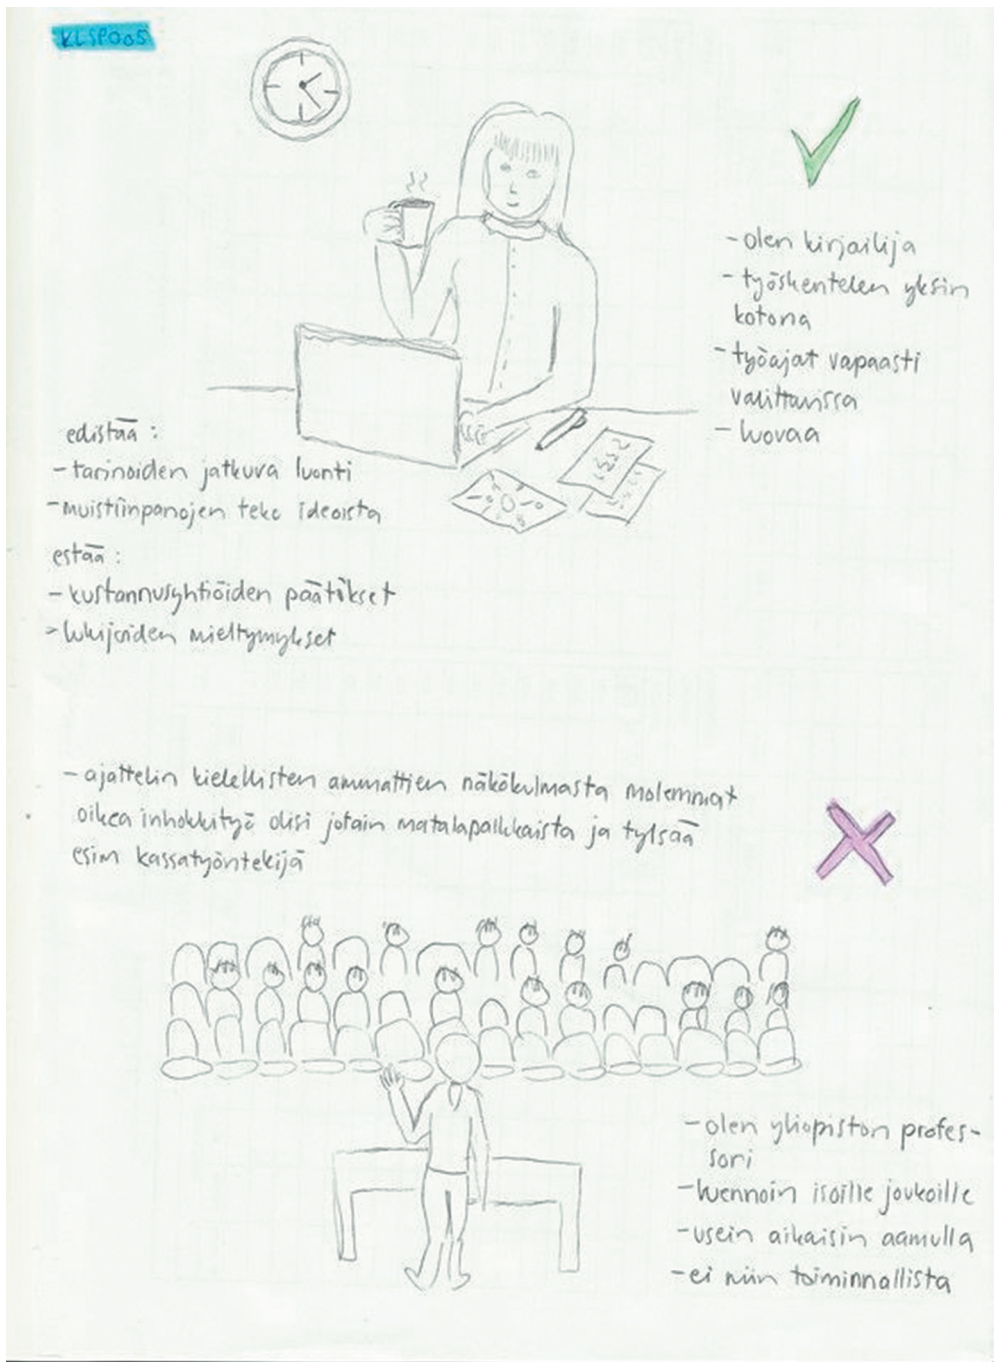 KLSP005
- olen kirjailija
- työskentelen yksin
kotona
- työajat vapaasti
valittavissa
- luovaa
edistää :
- tarinoiden jatkuva luonti
- muistiinpanojen teko ideoista
estää :
- kustannusyhtiöiden päätökset
- lukijoiden mieltymykset
- ajattelin kielellisten ammattien näkökulmasta molemmat
oikea inhokkityö olisi jotain matalapalkkaista ja tylsää
esim kassatyöntekijä
- olen yliopiston profes-
sori
- luennoin isoille joukoille
- usein aikaisin aamulla
- ei niin toiminnallista